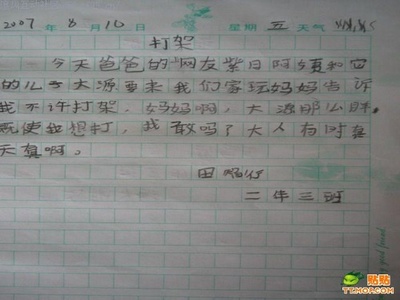 2007年8月10日 星期五 天气
打架
今天爸爸的"网友紫日阿姨和它
的儿子大源要来我们家玩妈妈告诉
我不许打架。妈妈啊,大源那么胖,
既使我想打,我敢吗了大人有时真
天真啊。
田
二年三班
贴贴
TTMOP.COM